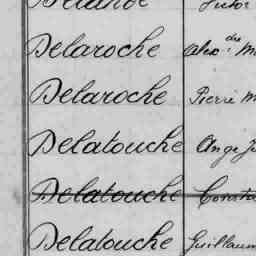 Delaroche Alex.dre
Delaroche Pierre M
Delatouche Ange J
Delatouche Consta
Delatouche Guillaum